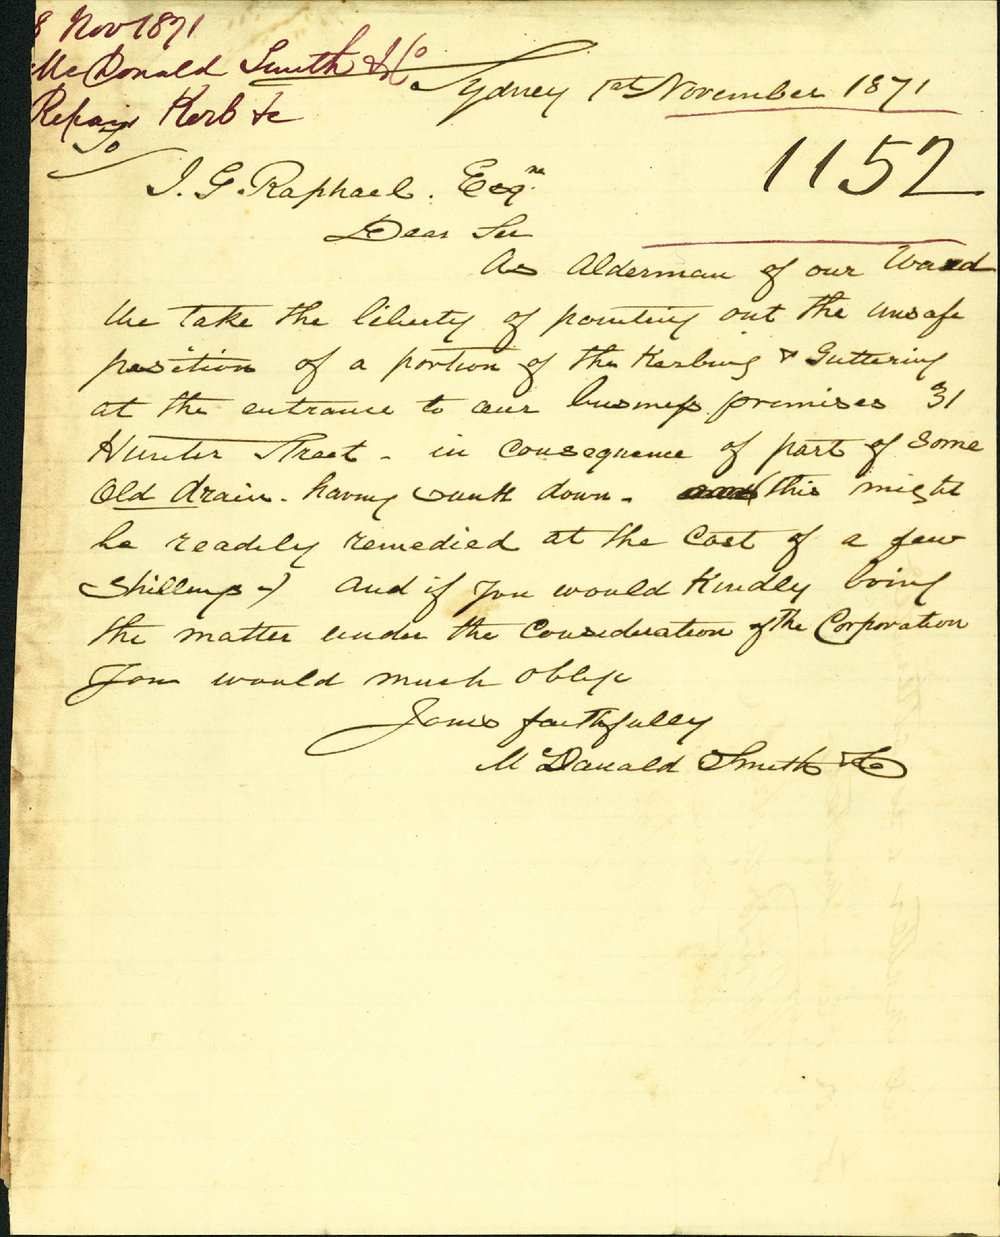 8 Nov 1871
McDonald Smith & Co
Repair Kerb &c
Sydney 1st November 1871
1152
To
J. G. Raphael. Esqre
Dear Sir
As Alderman of our Ward
We take the liberty of pointing out the unsafe
position of a portion of the Kerbing & Guttering
at the entrance to our business premises 31
Hunter Street - in consequence of part of some
Old drain - having sunk down - (this might
be readily remedied at the Cost of a few
shillings -) and if you would Kindly bring
the matter under the Consideration of the Corporation
You would much oblige
Yours faithfully
McDonald Smith & Co